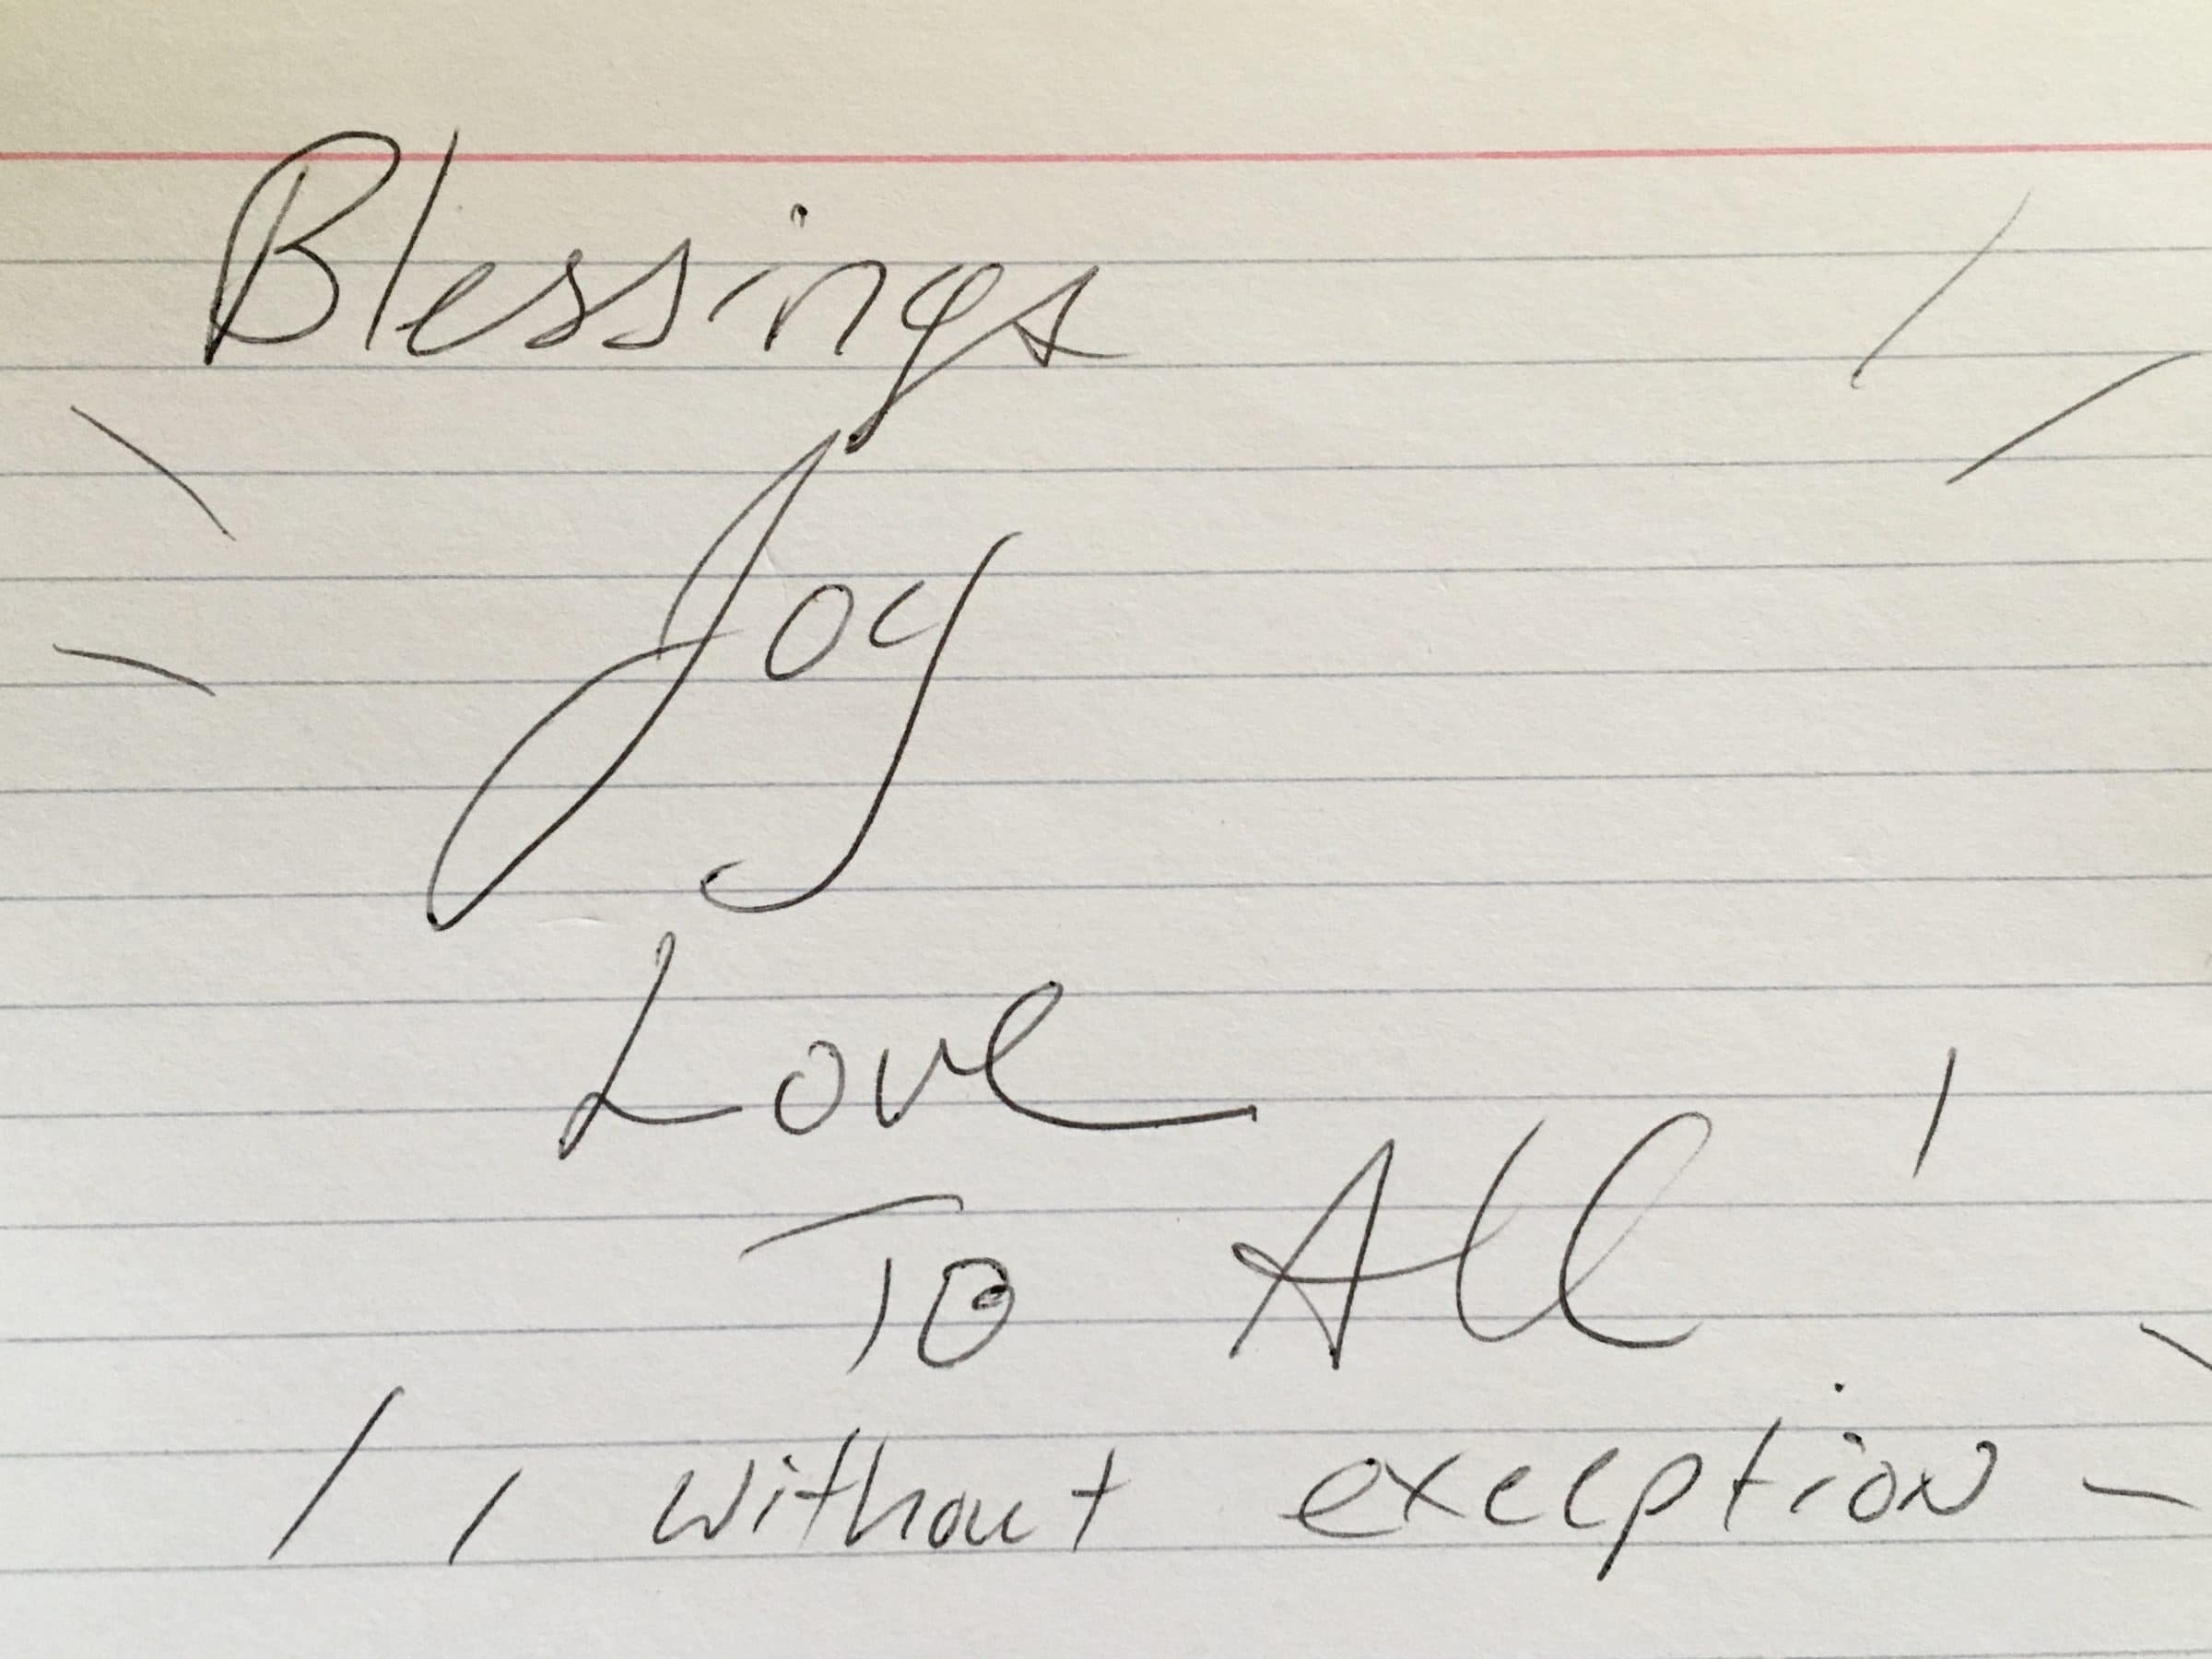 Blessings
Joy
Love
To All
without exception